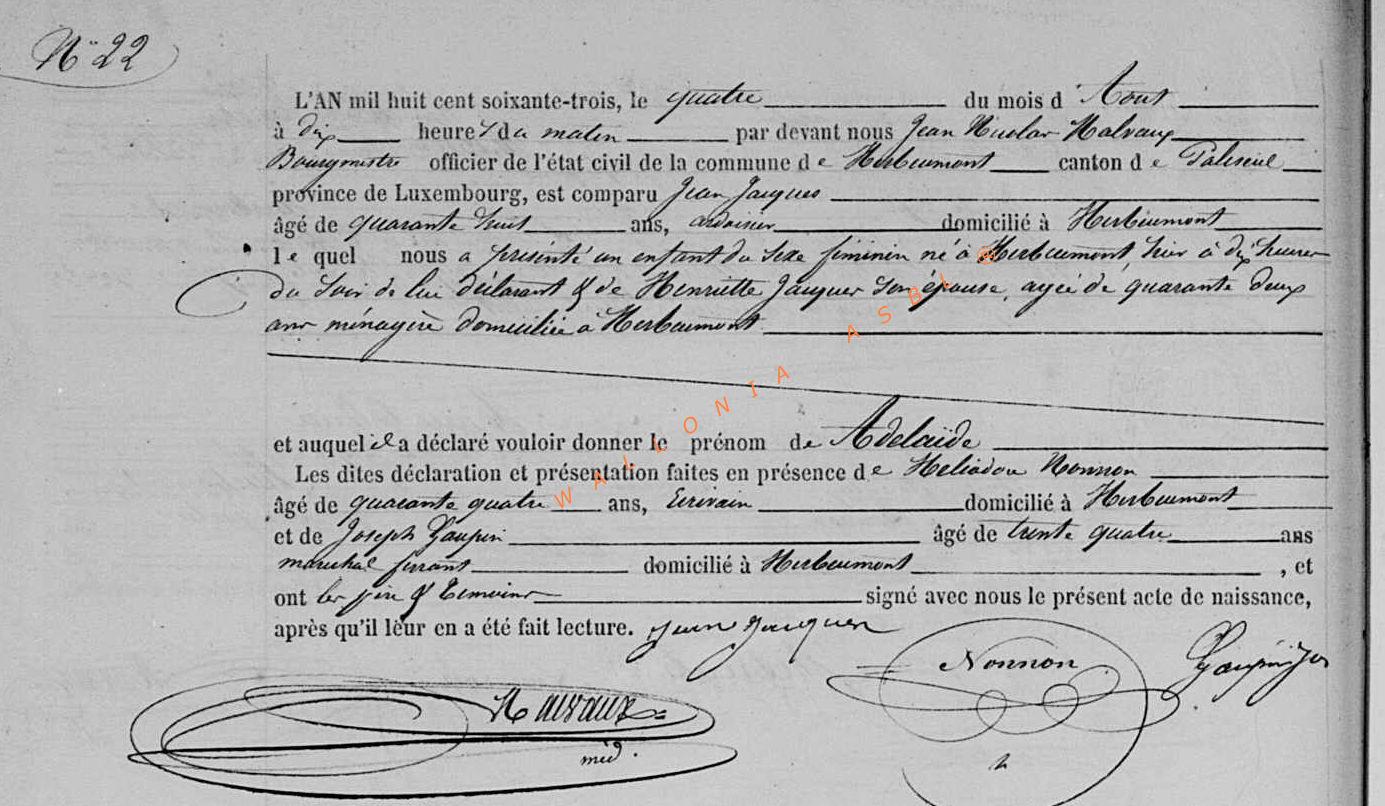 N° 22
L'AN mil huit cent soixante-trois, le quatre du mois d'Aout
à dix heures du matin par devant nous Jean Nicolas Malvaux
Bourgmestre officier de l'état civil de la commune de Herbeumont canton de Paliseul
province de Luxembourg, est comparu Jean Jacques
âgé de quarante huit ans, ardoisier domicilié à Herbeumont
lequel nous a présenté un enfant du sexe féminin né à Herbeumont hier à dix heures
du soir de lui déclarant & de Henriette Jacques son épouse, agée de quarante deux
ans ménagère domiciliée à Herbeumont
et auquel il a déclaré vouloir donner le prénom de Adelaïde
Les dites déclaration et présentation faites en présence de Héliodore Nonnon
âgé de quarante quatre ans, Ecrivain domicilié à Herbeumont
et de Joseph Gaupin âgé de trente quatre ans
maréchal ferrant domicilié à Herbeumont, et
ont les père & témoins signé avec nous le présent acte de naissance,
après qu'il leur en a été fait lecture. Jean Jacques
Nonnon
Gaupin Jos
Malvaux
méd.
WALLONIA ASBL